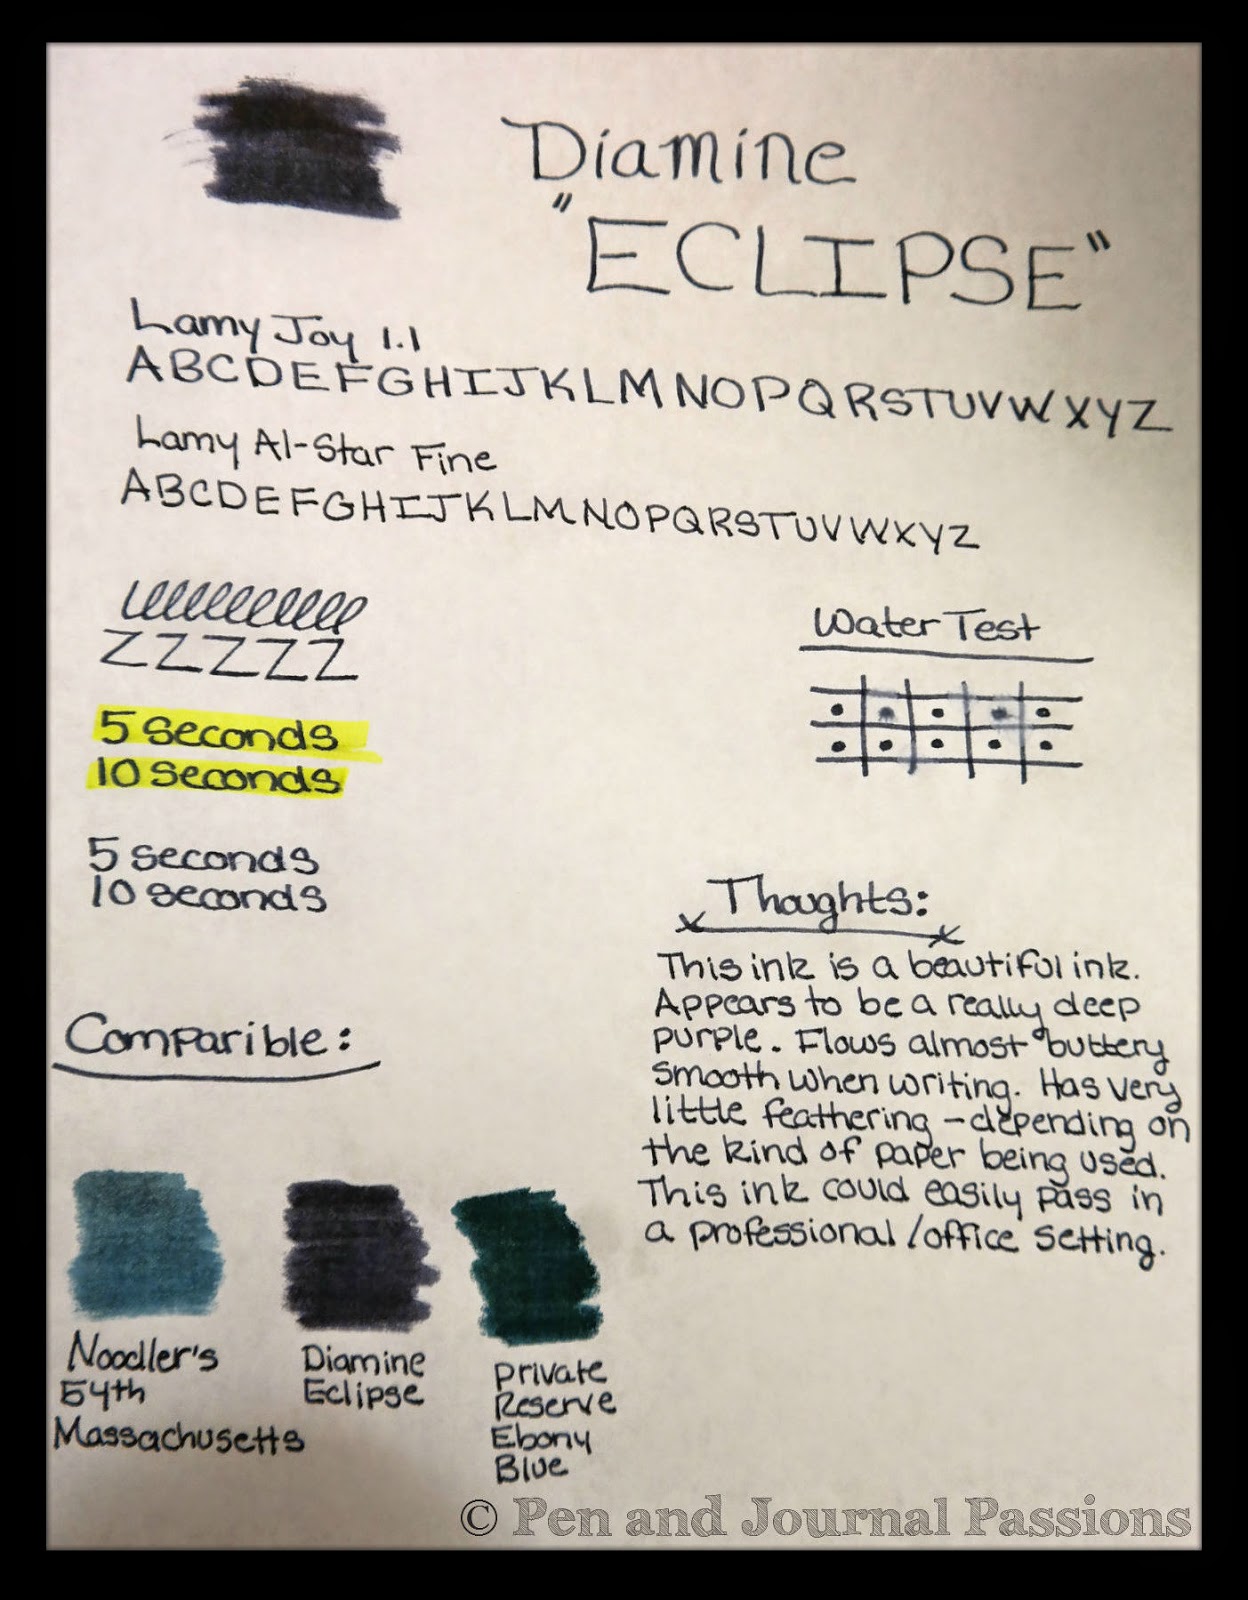 Diamine
"ECLIPSE"
Lamy Joy 1.1
ABCDEFGHIJKLMNOPQRSTUVWXYZ
Lamy Al-Star Fine
ABCDEFGHIJKLMNOPQRSTUVWXYZ
llllllllllll
ZZZZZ
5 seconds
10 seconds
5 seconds
10 seconds
Water Test
Thoughts:
This ink is a beautiful ink.
Appears to be a really deep
purple. Flows almost buttery
smooth when writing. Has very
little feathering - depending on
the kind of paper being used.
This ink could easily pass in
a professional/office setting.
Comparible:
Noodler's
54th
Massachusetts
Diamine
Eclipse
Private
Reserve
Ebony
Blue
© Pen and Journal Passions